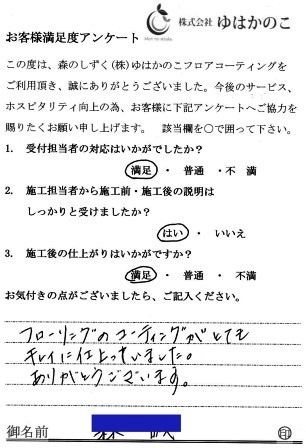 株式会社 ゆはかのこ
お客様満足度アンケート
この度は、森のしずく(株)ゆはかのこフロアコーティングを
ご利用頂き、誠にありがとうございました。今後のサービス、
ホスピタリティ向上の為、お客様に下記アンケートへご協力を
賜りたくお願い申し上げます。 該当欄を○で囲って下さい。
1. 受付担当者の対応はいかがでしたか?
満足 ・ 普通 ・不 満
2. 施工担当者から施工前・施工後の説明は
しっかりと受けましたか?
はい ・ いいえ
3. 施工後の仕上がりはいかがですか?
満足 ・ 普通 ・ 不満
お気付きの点がございましたら、ご記入ください。
フローリングのコーティングがとても
キレイに仕上っていました。
ありがとうございます。
御名前 印